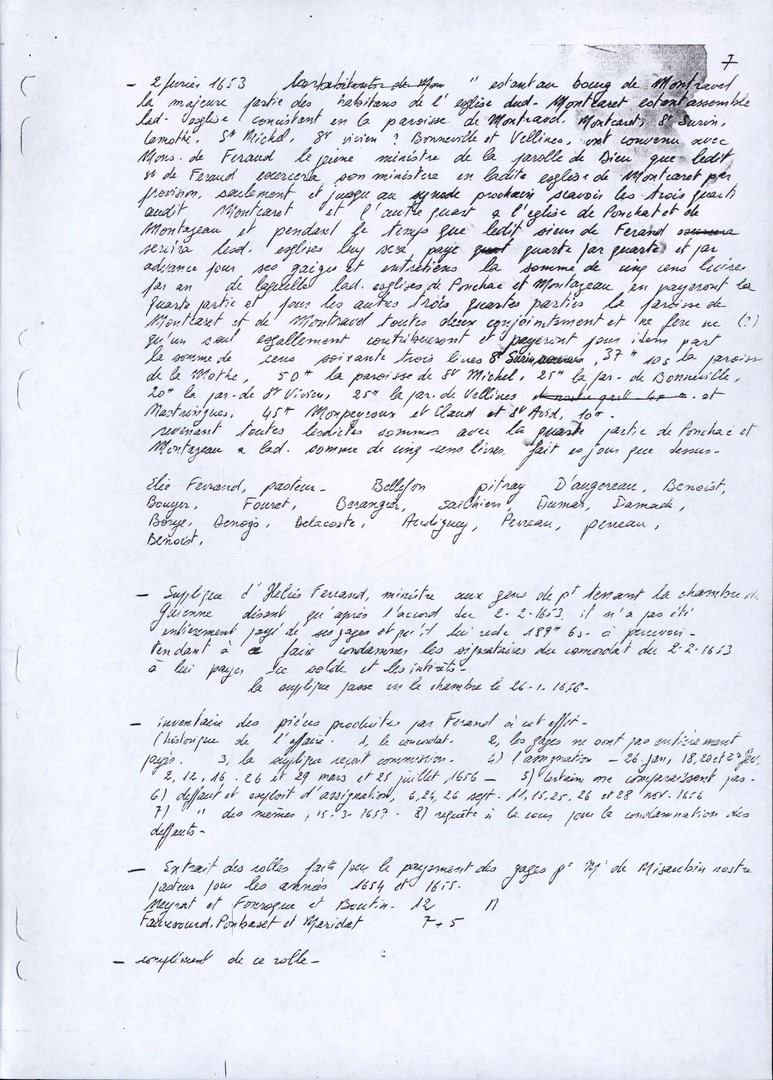 7
- 2 fevrier 1653 Les habitants de Mon " estant au bourg de Montravel
la majeure partie des habitans de l'esglise dud. Montcaret estant assemblé
lad. esglise consistant en la paroisse de Montravel, Montcaret, St Surin,
Lamothe, St Michel, St vivien ? Bonneville et Vellines, ont convenu avec
Mons. de Feraud le jeune ministre de la parolle de Dieu que ledit
sr de Feraud exercera son ministere en ladite esglise de Montcaret par
provision, seulement et jusqu au synode prochain scavoir les trois quarts
audit Montcaret et l'autre quart a l'eglise de Ponchat et de
Montazeau et pendant le temps que ledit sieur de Ferand
servira lesd. esglises luy sera payé quarte par quarte et par
advance pour ses gaiges et entretiens la somme de cinq cens livres
par an de laquelle lad. esglises de Ponchac et Montazeau en payeront la
quarte partie et pour les autres trois quartes parties la paroisse de
Montcaret et de Montravel toutes deux conjointement et ne fere ne (?)
qu'un seul esgallement contribueront et payeront pour item part
la somme de cens soixante trois livres St Surin, 37 " 10 s la paroisse
de la Mothe, 50 " la paroisse de St Michel, 25 " la par. de Bonneville,
20 " la par. de St Vivien, 25 " la par. de Vellines et
Nastringues, 45 " Monpeyroux et Claud et St Avid, 10 ".
revenant toutes lesdictes sommes avec la quarte partie de Ponchac et
Montazeau a lad. somme de cinq cens livres. fait es jour que dessus -
Elie Ferrand, pasteur - Bellefon pitray D'augereau, Benoist,
Bouyer, Fouret, Beranger, Dumas, Damade,
Borye, Delacoste, Audiguey, Perreau, perreau,
Benoist,
- Suplique d'Helies Ferrand, ministre aux gens de pt tenant la chambre de
Guienne disant qu'après l'accord du 2-2-1653 il n'a pas été
entièrement payé de ses gages et qu'il lui reste 189 " 6 s à percevoir -
Tendant à faire condamner les signataires du concordat du 2-2-1653
à lui payer le solde et les interêts -
la suplique passe en la chambre le 26-1-1656 -
- inventaire des pièces produites par Ferand à cet effet -
(historique de l'affaire. 1, le concordat. 2, les gages ne sont pas entièrement
payés. 3, la suplique reçoit commission. 4) l'assignation - 26 jan, 18, 20 et 27 fev,
2, 12, 16, 26 et 29 mars et 25 juillet, 1656 - 5) certain ne comparaissent pas -
6) deffaut et exploit d'assignation, 6, 24, 26 sept - 11, 15, 25, 26 et 28 nov - 1656
7) " des memes, 15-3-1657 - 8) requête à la cour pour la condamnation des
deffauts -
- Extrait des rolles faits pour le payement des gages pr Mr de Misaubin nostre
pasteur pour les années 1654 et 1655 -
Meyrat et Fonroque et Boutin - 12 "
Ponbaset et Maridat 7 + 5
- complément de ce rolle -